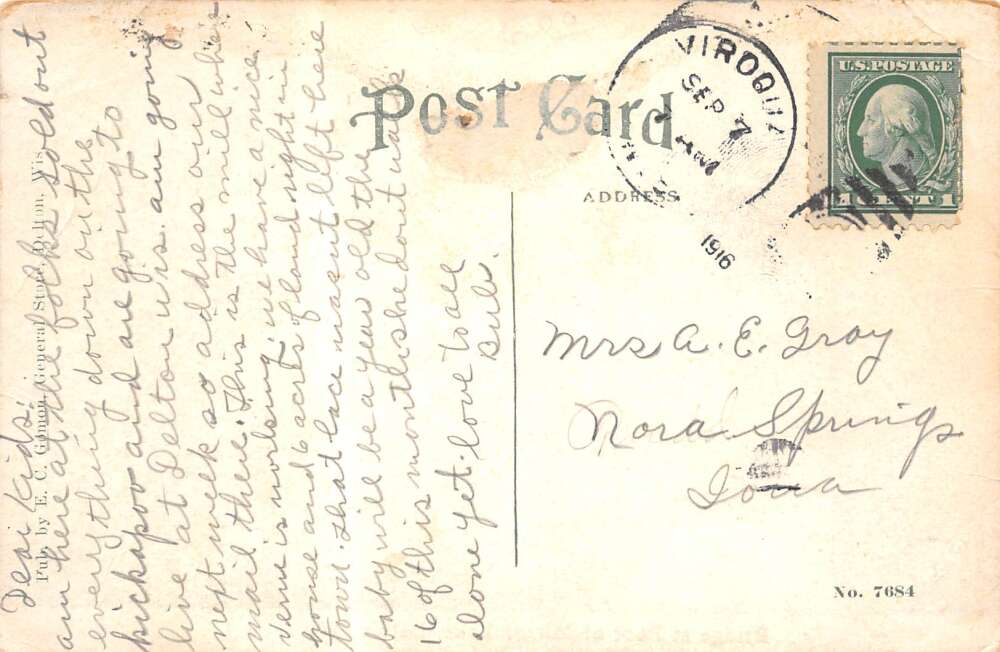 Post Card
ADDRESS
VIROQUA
SEP 7
1916
U.S. POSTAGE
1 CENT 1
Dear Kids:
am here at the folks sold out
everything down on the
kickapoo and are going to
live at Delton Wis. am going
next week so address our
mail there. This is the mill where
verne is working, we have a nice
house and 6 acres of land right in
town. that lace was left here
baby will be a year old the
16 of this month she dont walk
alone yet. love to all
Bub.
Mrs A. E. Gray
Nora Springs
Iowa
Pub. by E. C. Gomon, General Store, Delton, Wis.
No. 7684